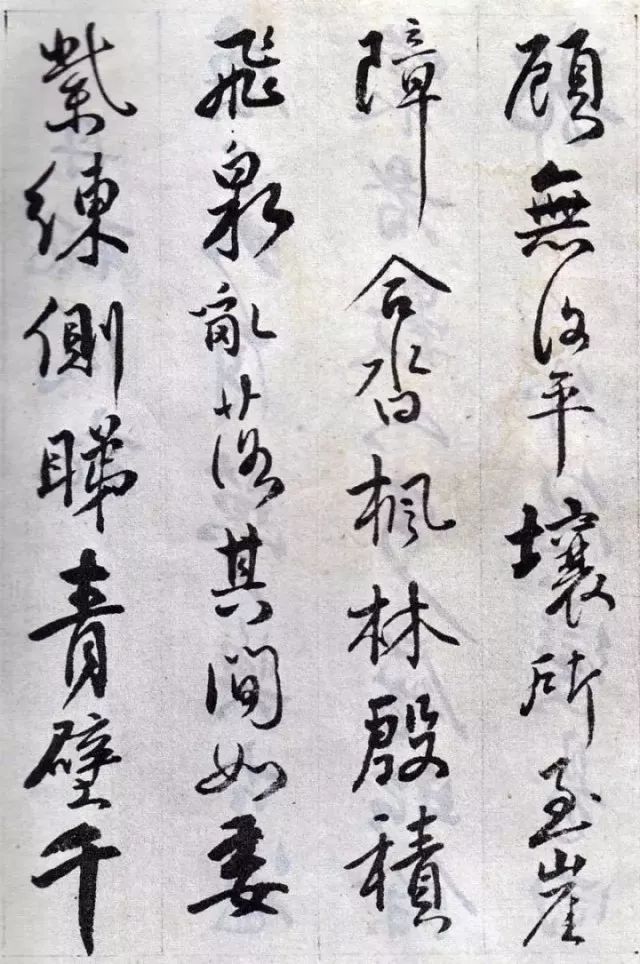 顧無復平壤所至崖
障合沓楓林殷積
飛泉亂落其間如委
紫練側睇青壁千